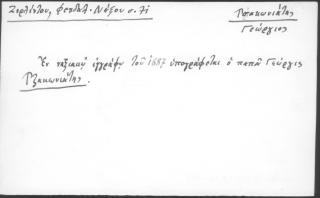 Ζερλέντου, Φεουδ. Νάξου σ. 71
Τσακωνιάτης
Γεώργιος
Ἐν ναξιακῷ ἐγγράφῳ τοῦ 1687 ὑπογράφεται ὁ παπᾶ Γεώργις
Τζακωνιάτης.